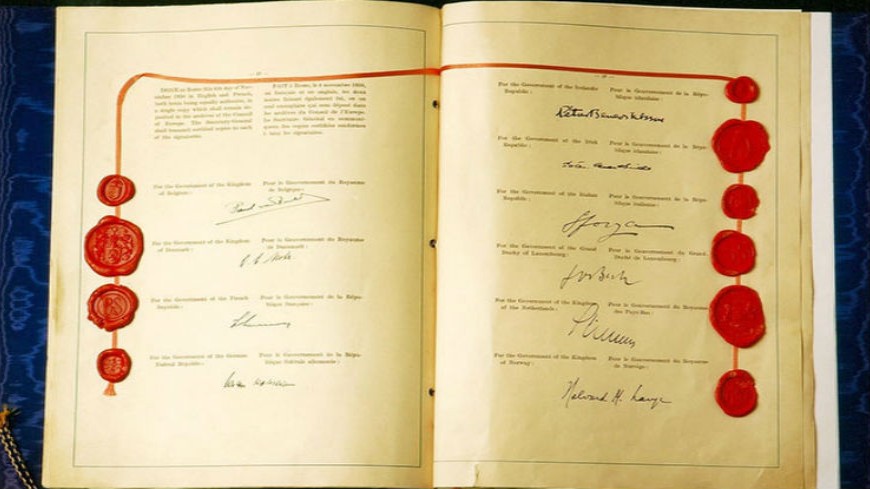 DONE at Rome this 4th day of Nov-
ember 1950 in English and French,
both texts being equally authentic, in
a single copy which shall remain de-
posited in the archives of the Council
of Europe. The Secretary-General
shall transmit certified copies to each
of the signatories.
FAIT à Rome, le 4 novembre 1950,
en français et en anglais, les deux
textes faisant également foi, en un
seul exemplaire qui sera déposé dans
les archives du Conseil de l'Europe.
Le Secrétaire Général en communi-
quera des copies certifiées conformes
à tous les signataires.
For the Government of the Kingdom
of Belgium:
Pour le Gouvernement du Royaume
de Belgique:
For the Government of the Kingdom
of Denmark:
Pour le Gouvernement du Royaume
de Danemark:
For the Government of the French
Republic:
Pour le Gouvernement de la Répu-
blique française:
For the Government of the German
Federal Republic:
Pour le Gouvernement de la Répu-
blique fédérale allemande:
For the Government of the Icelandic
Republic:
Pour le Gouvernement de la Répu-
blique islandaise:
For the Government of the Irish
Republic:
Pour le Gouvernement de la Répu-
blique irlandaise:
For the Government of the Italian
Republic:
Pour le Gouvernement de la Répu-
blique italienne:
Sforza
For the Government of the Grand
Duchy of Luxembourg:
Pour le Gouvernement du Grand-
Duché de Luxembourg:
Jos Bech
For the Government of the Kingdom
of the Netherlands:
Pour le Gouvernement du Royaume
des Pays-Bas:
For the Government of the Kingdom
of Norway:
Pour le Gouvernement du Royaume
de Norvège:
Halvard M. Lange